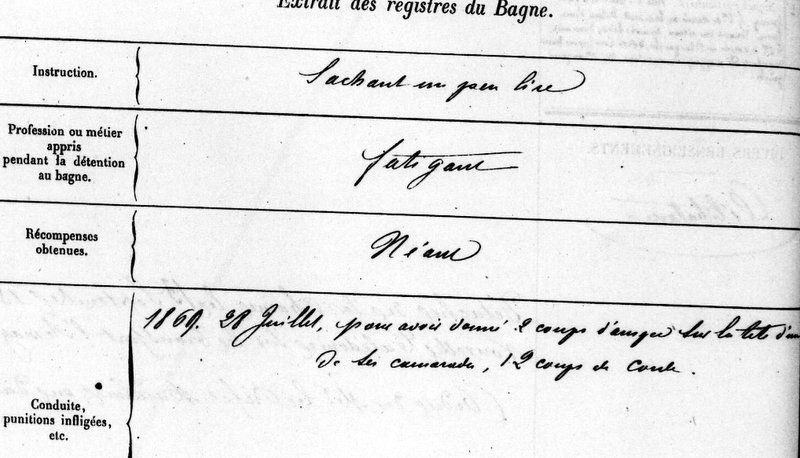 Extrait des registres du Bagne.
Instruction.
Sachant un peu lire
Profession ou métier
appris
pendant la détention
au bagne.
fatigant
Récompenses
obtenues.
Néant
1869. 28 Juillet, pour avoir donné 2 coups sur la tête d'un
de ses camarades, 12 coups de corde.
Conduite,
punitions infligées,
etc.
DIVERS RENSEIGNEMENTS.